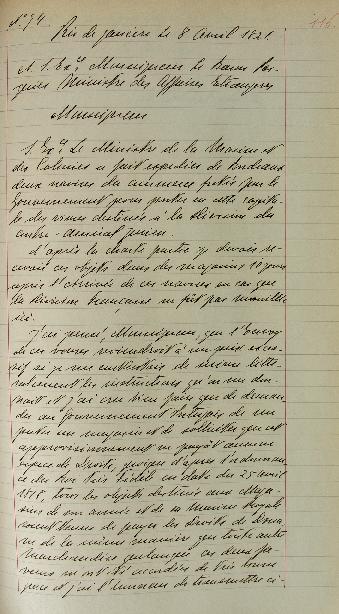 N° 74
116
Rio de janeiro le 8 avril 1821.
A S. Ex. Monseigneur le Baron Pas-
quier Ministre des Affaires Etrangères
Monseigneur
S. Ex. Le Ministre de la Marine et
des Colonies a fait expédier de Bordeaux
deux navires du commerce frétés par le
Gouvernement pour porter en cette capita-
le des vivres destinés à la Division du
contre-amiral Jurien.
d'après la charte partie je devais re-
cevoir ces objets dans des magasins 10 jours
après l'arrivée de ces navires en cas que
la Division française ne fût pas mouillée
ici.
J'ai pensé, Monseigneur, que l'envoy
de ces vivres reviendroit à un prix exces-
sif si je me contentois de suivre litté-
ralement les instructions qu'on me don-
nait et j'ai cru bien faire que de deman-
der au gouvernement Portugais de me
prêter un magasin et de solliciter que cet
approvisionnement ne payât aucune
espèce de Droits, quoique d'après l'ordonnan-
ce du Roi Très fidèle en date du 25 avril
1818, tous les objets destinés aux Maga-
sins de son armée et de sa marine Royale
soient tenus de payer les droits de Doua-
ne de la même manière que toute autre
marchandise quelconque ces deux fa-
veurs m'ont été accordées de très bonne
grace et j'ai l'honneur de transmettre ci-